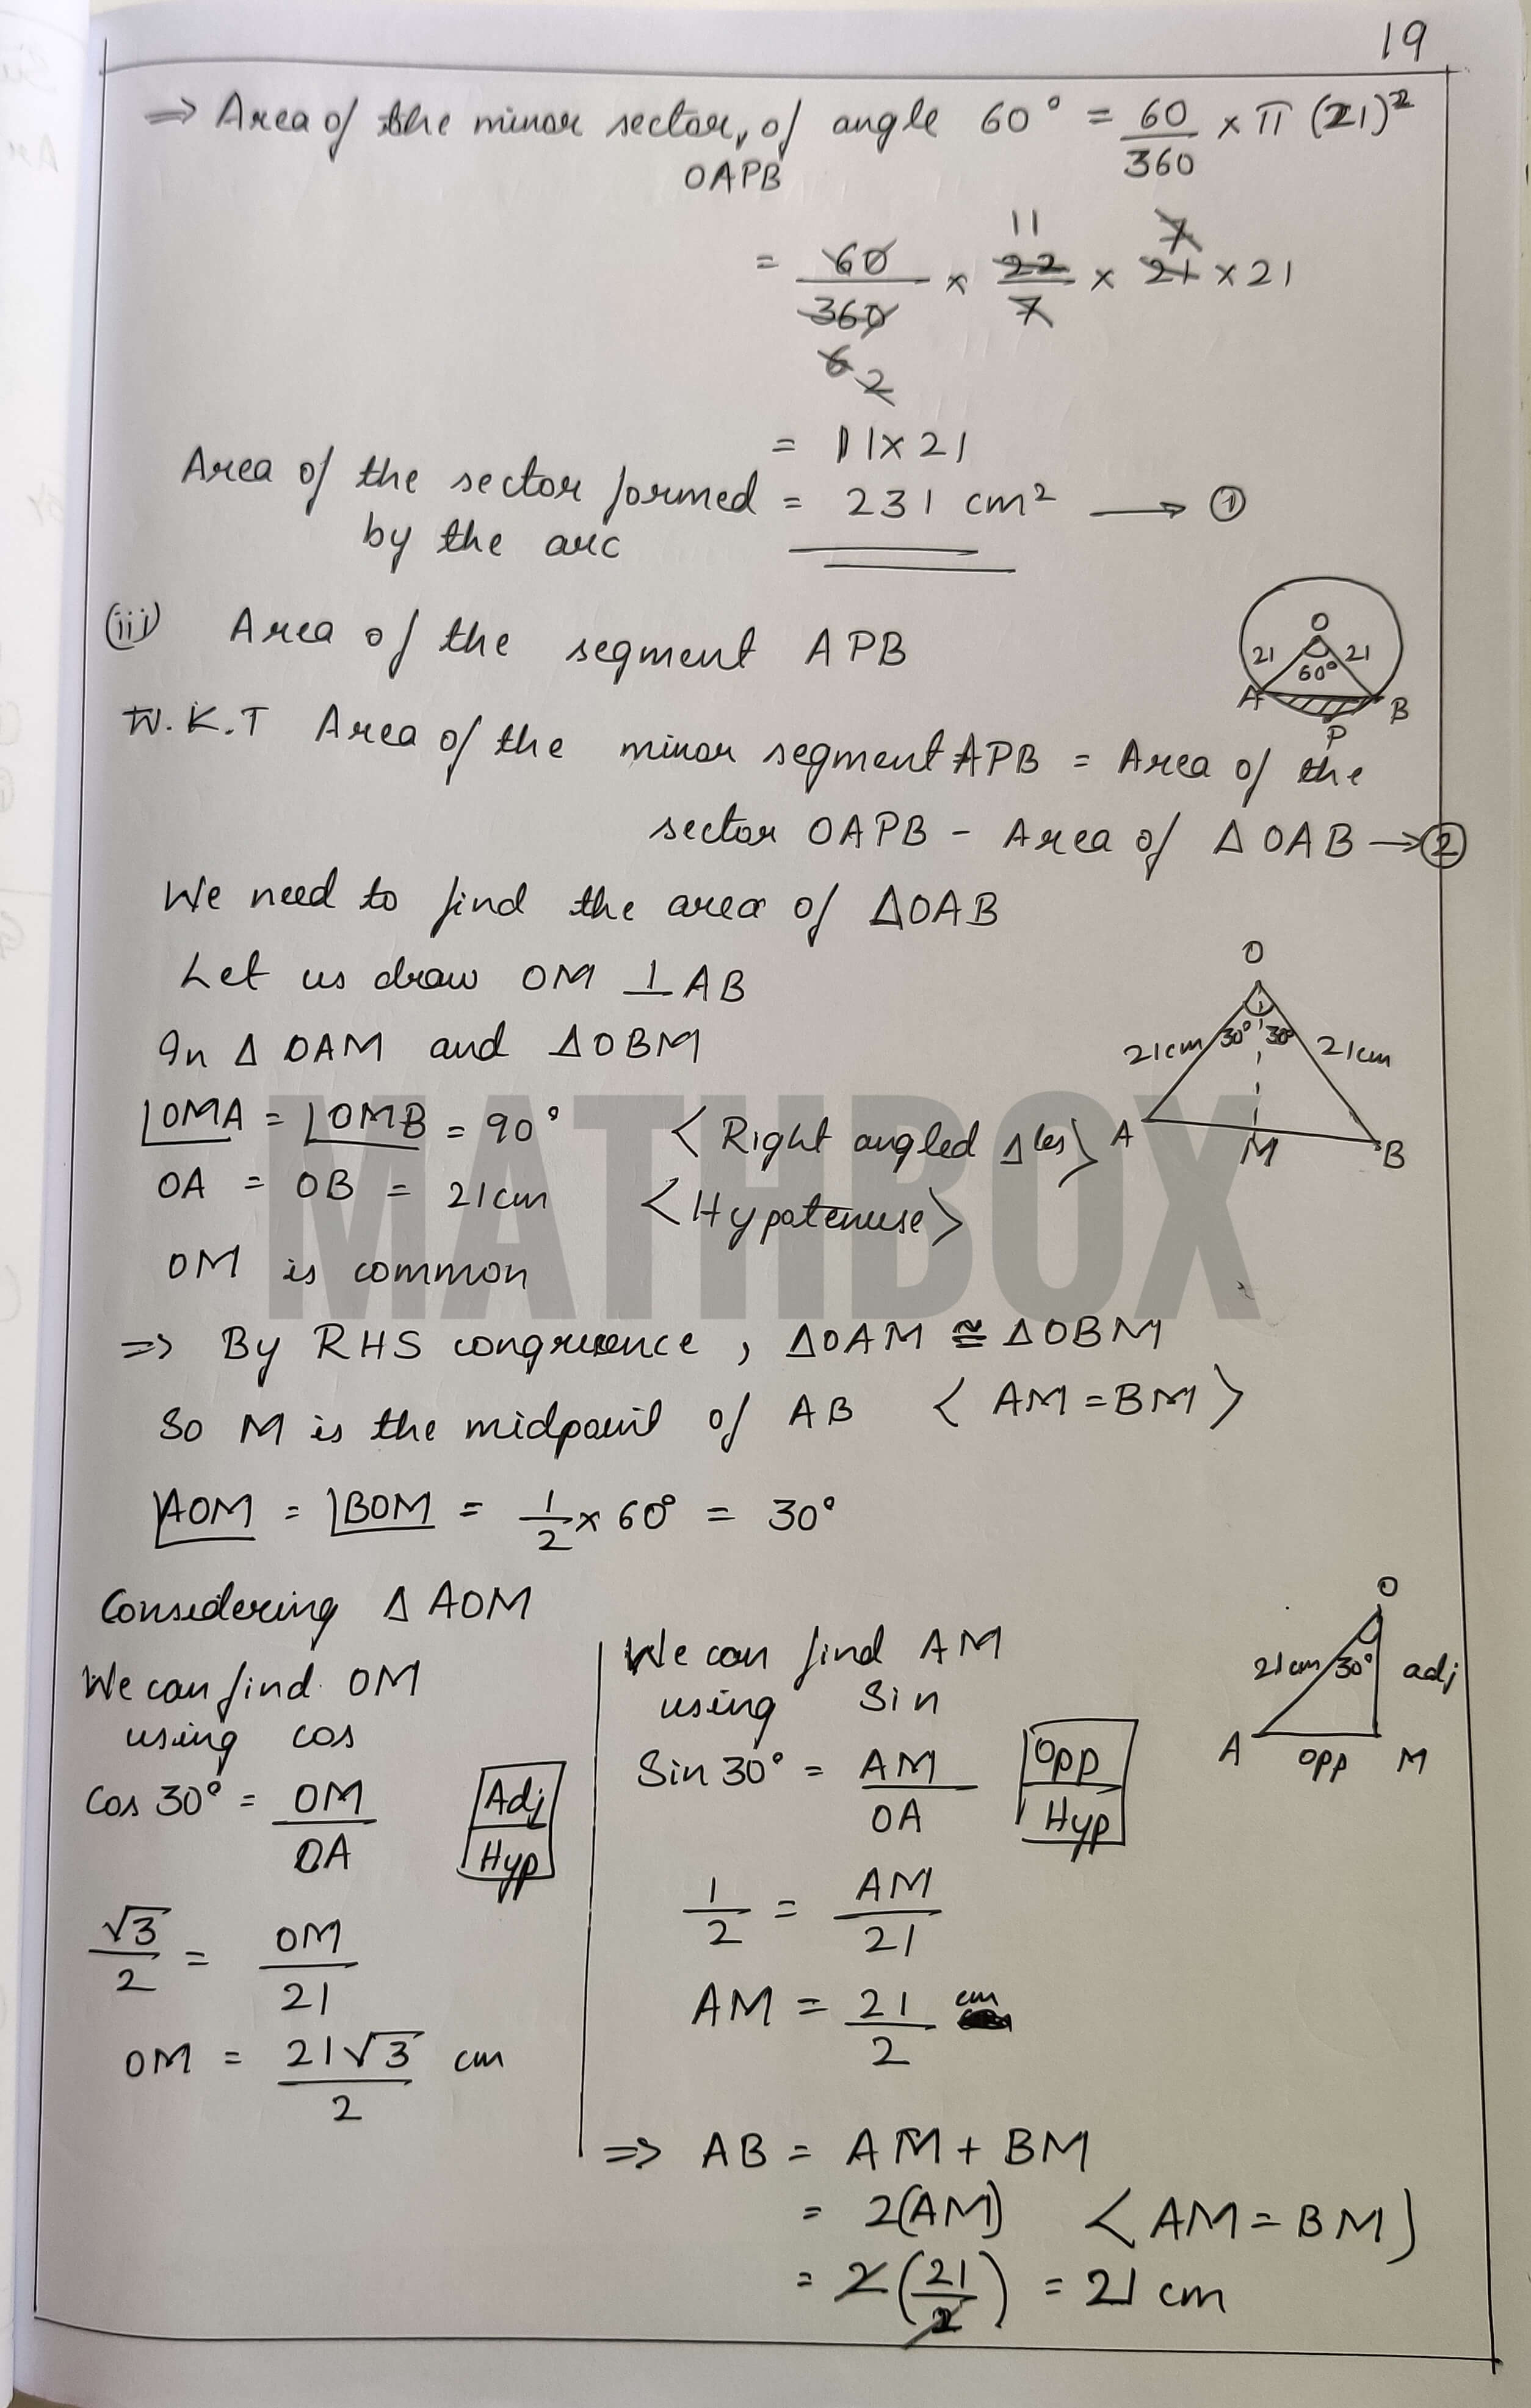 19
⇒ Area of the minor sector, of angle 60° = 60/360 × π (21)²
OAPB
= 60/360 × 22/7 × 21 × 21
11 7
6 2
= 11 × 21
Area of the sector formed = 231 cm² → ①
by the arc
(iii) Area of the segment APB
O
21 21
60°
A B
P
W.K.T Area of the minor segment APB = Area of the
sector OAPB - Area of Δ OAB → ②
We need to find the area of ΔOAB
Let us draw OM ⊥ AB
In Δ OAM and ΔOBM
O
30° 30°
21cm 21cm
A M B
∠OMA = ∠OMB = 90° < Right angled Δles>
OA = OB = 21cm <Hypotenuse>
OM is common
⇒ By RHS congruence, ΔOAM ≅ ΔOBM
So M is the midpoint of AB < AM = BM >
∠AOM = ∠BOM = 1/2 × 60° = 30°
Considering Δ AOM
We can find OM
using cos
Cos 30° = OM/OA Adj/Hyp
√3/2 = OM/21
OM = 21√3/2 cm
We can find AM
using Sin
Sin 30° = AM/OA Opp/Hyp
1/2 = AM/21
AM = 21/2 cm
O
21cm 30° adj
A opp M
⇒ AB = AM + BM
= 2(AM) < AM = BM)
= 2(21/2) = 21 cm
MATHBOX